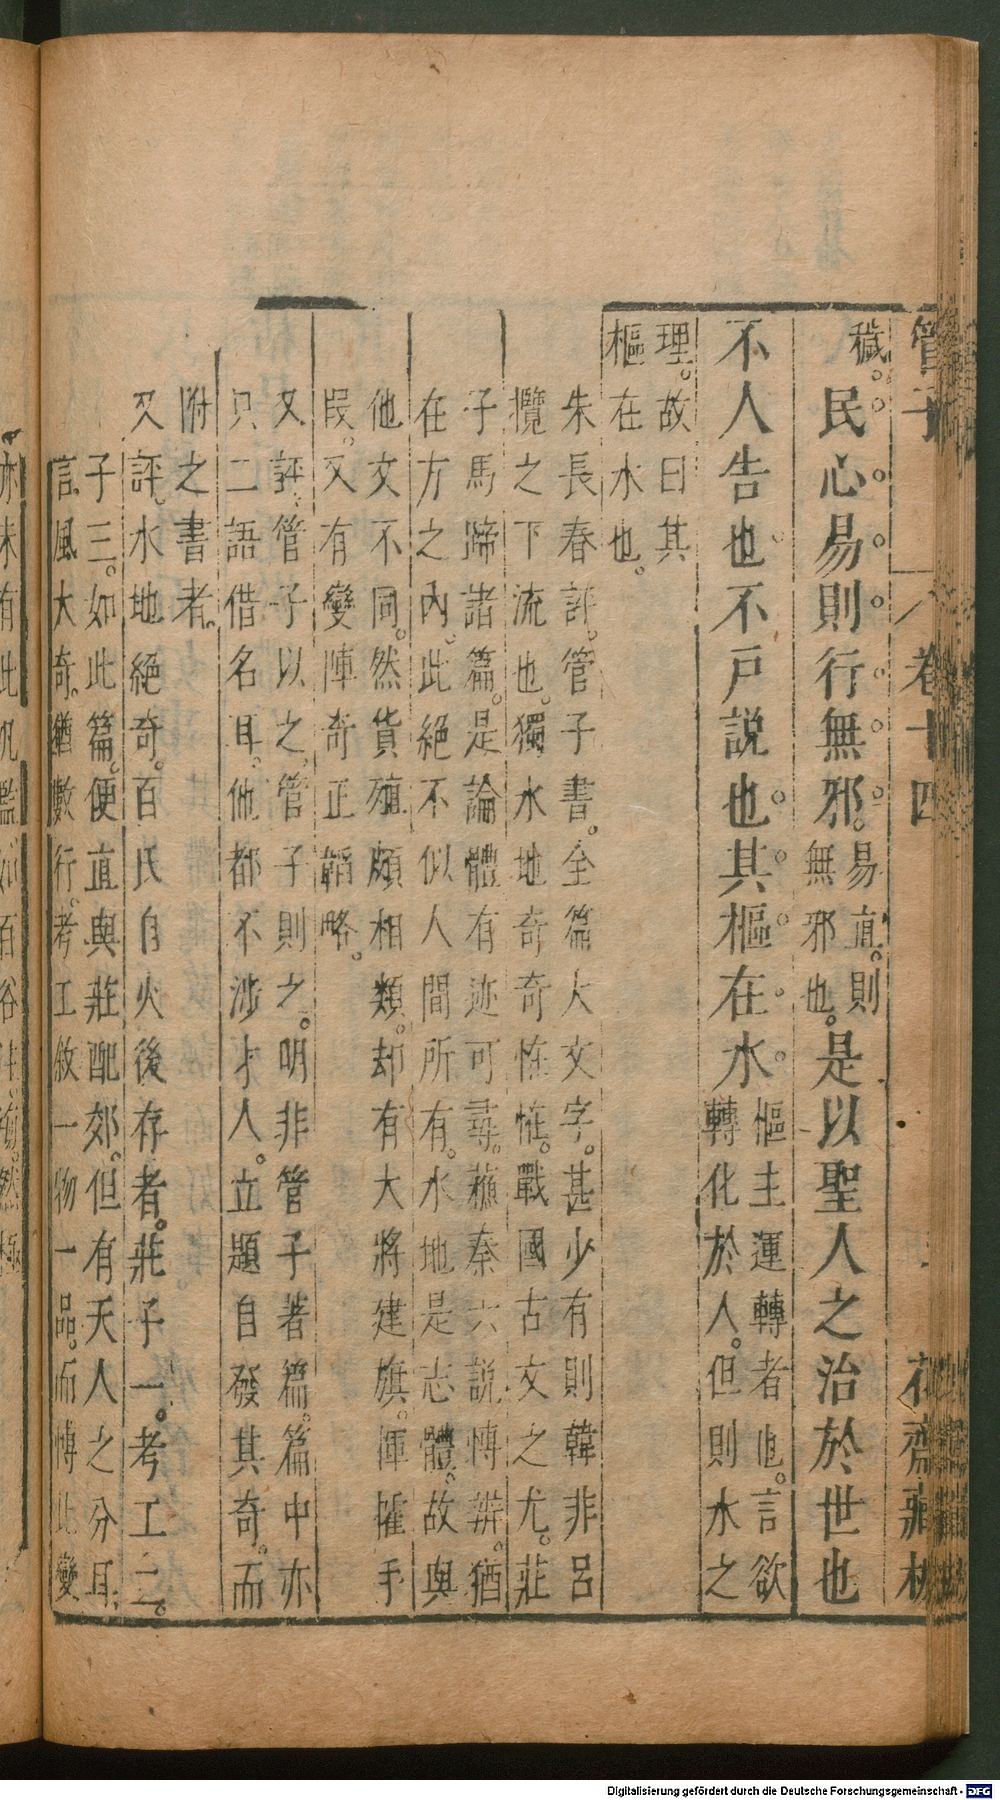 管子
卷十四
花齋藏板
穢。民心易則行無邪。易直。則無邪也。是以聖人之治於世也
不人告也不戶説也其樞在水樞主運轉者也。言欲轉化於人。但則水之
理。故曰其樞在水也。
朱長春評。管子書。全篇大文字。甚少有則韓非呂
攬之下流也。獨水地奇奇恠恠。戰國古文之尤。莊
子馬蹄諸篇。是論體有迹可尋。蘇秦六說博辨。猶
在方之內。此絕不似人間所有。水地是志體。故與
他文不同。然貨殖頗相類。却有大將建旗。揮㩁手
叚。又有變陣奇正韜略。
又評。管子以之。管子則之。明非管子著篇。篇中亦
只二語借名耳。他都不涉才人。立題自發其奇。而
附之書者。
又評。水地絕奇。百氏自火後存者。莊子一。考工二。
子三。如此篇。便直與莊配郊。但有天人之分耳。
言風大奇。猶數行。考工敘一物一品。而博此變
亦未有此
百谷
然極
Digitalisierung gefördert durch die Deutsche Forschungsgemeinschaft - DFG